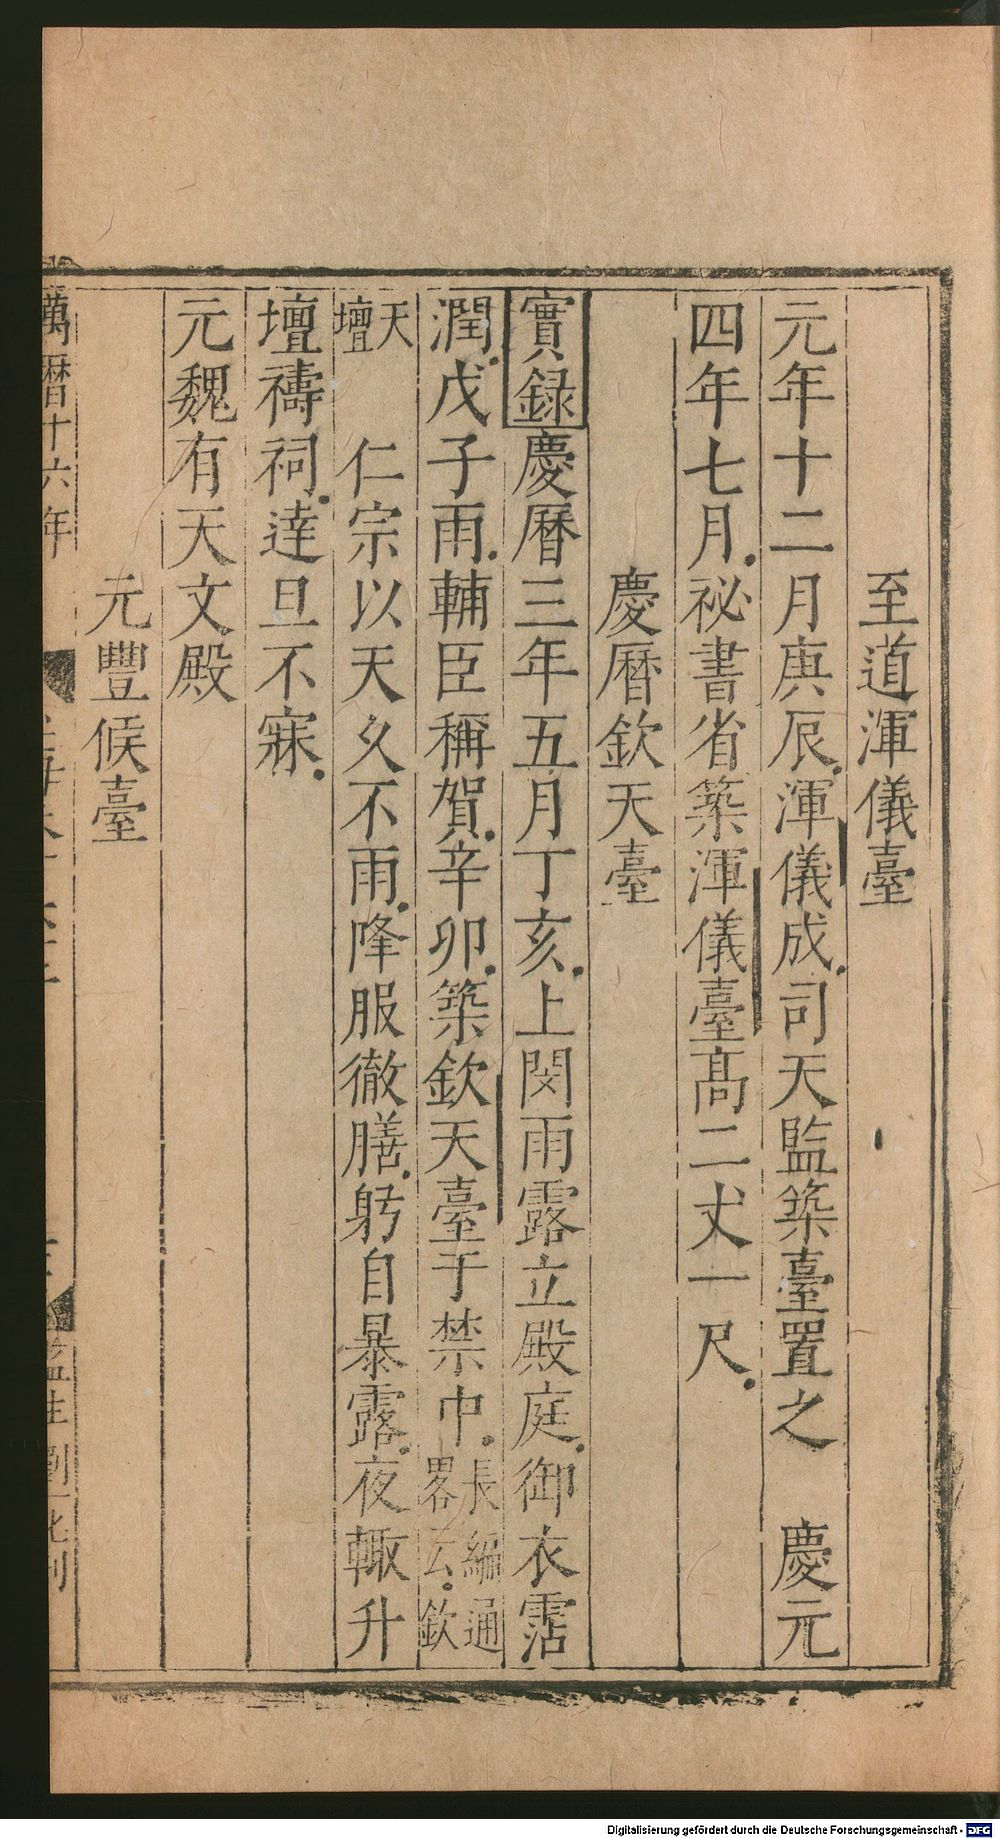 至道渾儀臺
元年十二月庚辰渾儀成司天監築臺置之　慶元
四年七月祕書省築渾儀臺髙二丈一尺
慶曆欽天臺
實録慶曆三年五月丁亥上閔雨露立殿庭御衣霑
潤戊子雨輔臣稱賀辛卯築欽天臺于禁中長編通畧云欽
天壇　仁宗以天久不雨降服徹膳躬自暴露夜輙升
壇禱祠逹旦不寐
元魏有天文殿
元豐候臺
萬曆十六年
監生劉
Digitalisierung gefördert durch die Deutsche Forschungsgemeinschaft - DFG